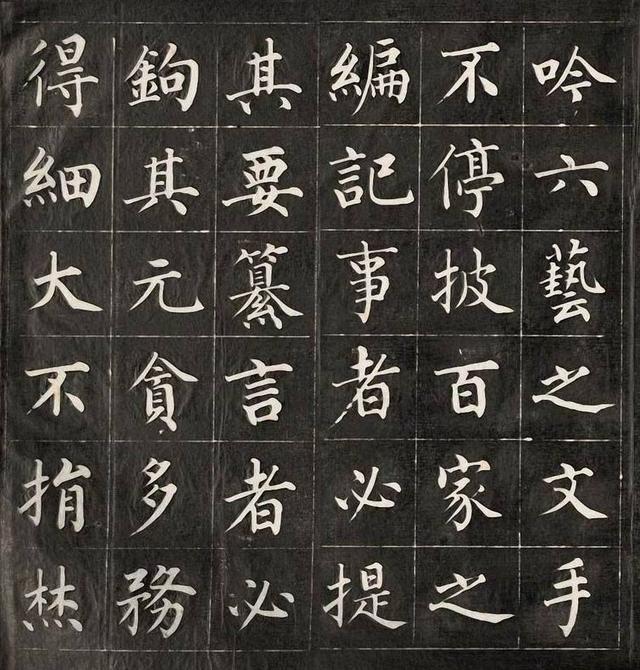 吟六藝之文手
不停披百家之
編記事者必提
其要纂言者必
鉤其元貪多務
得細大不捐焚